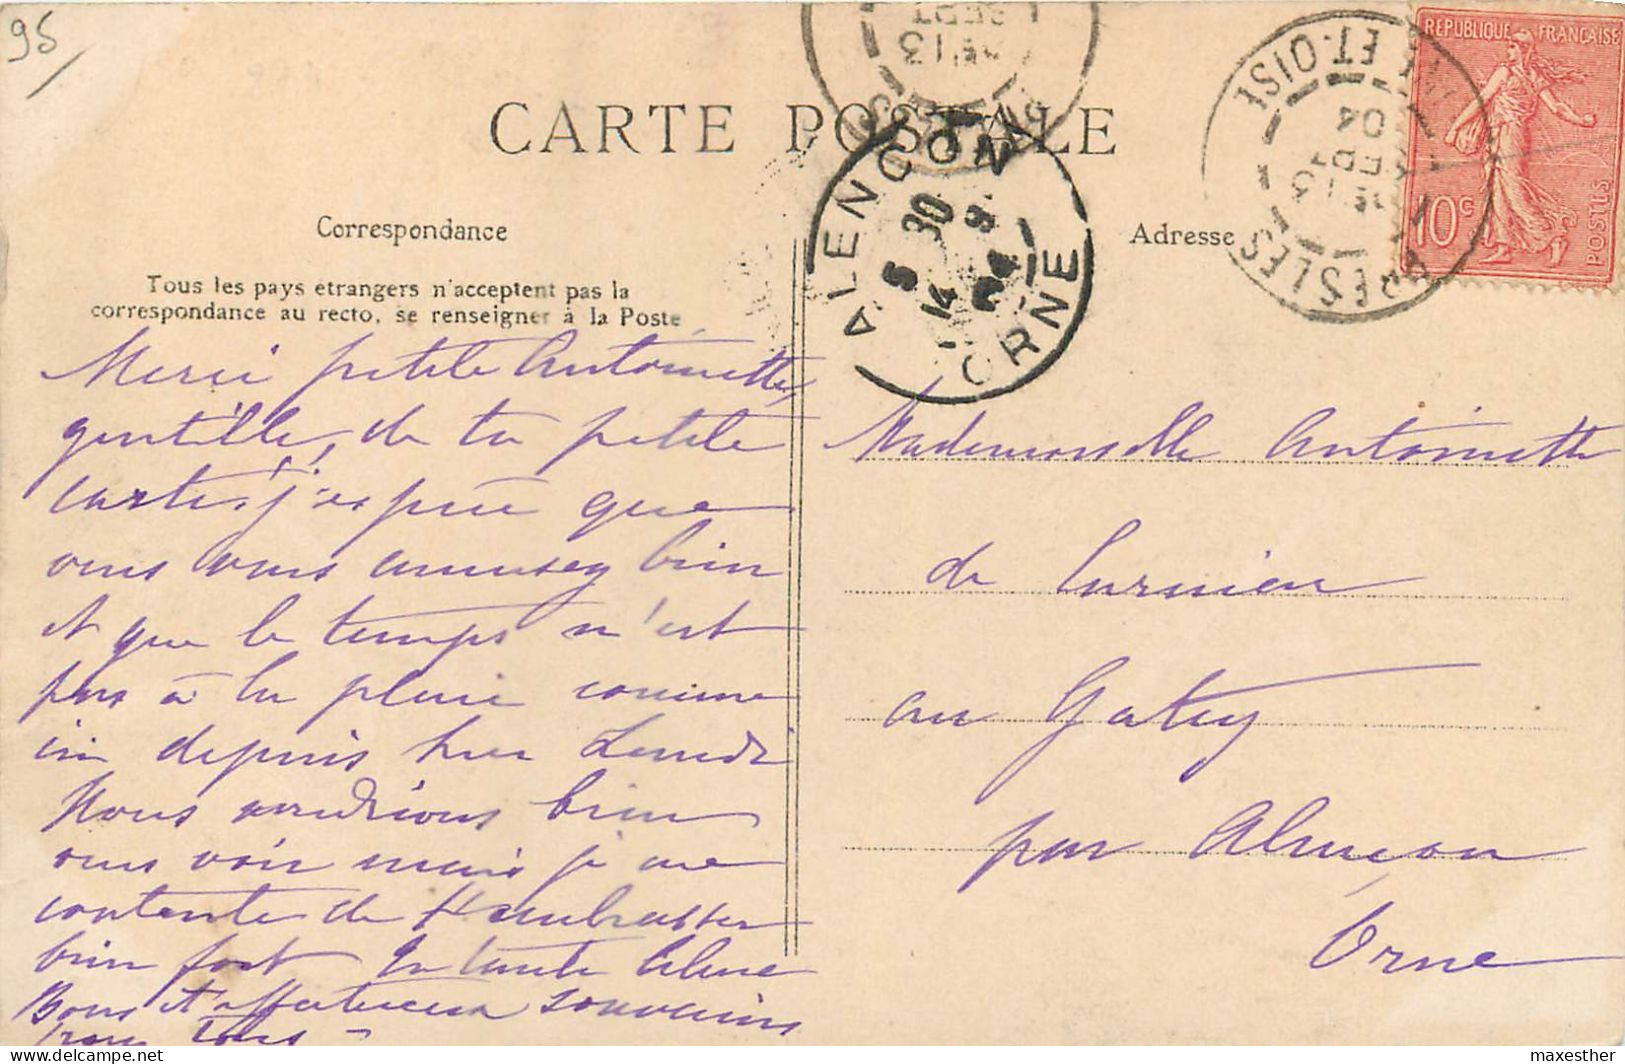 95
CARTE POSTALE
Correspondance
Tous les pays étrangers n'acceptent pas la
correspondance au recto, se renseigner à la Poste
Merci petite Antoinette,
gentille, de ta petite
carte. j'espère que
vous vous amusez bien
et que le temps n'est
pas à la pluie comme
ici depuis hier Lundi
Nous voudrions bien
vous voir mais je me
contente de t'embrasser
bien fort ta tante
Bons et affectueux souvenirs
pour tous
Adresse
Mademoiselle Antoinette
de
au Gatey
par Alençon
Orne
RÉPUBLIQUE FRANÇAISE
10c
POSTES
ALENCON
5 30
14 9
04
ORNE
PRESLES
ET-OISE
13
SEPT
04
13
SEPT
maxesther